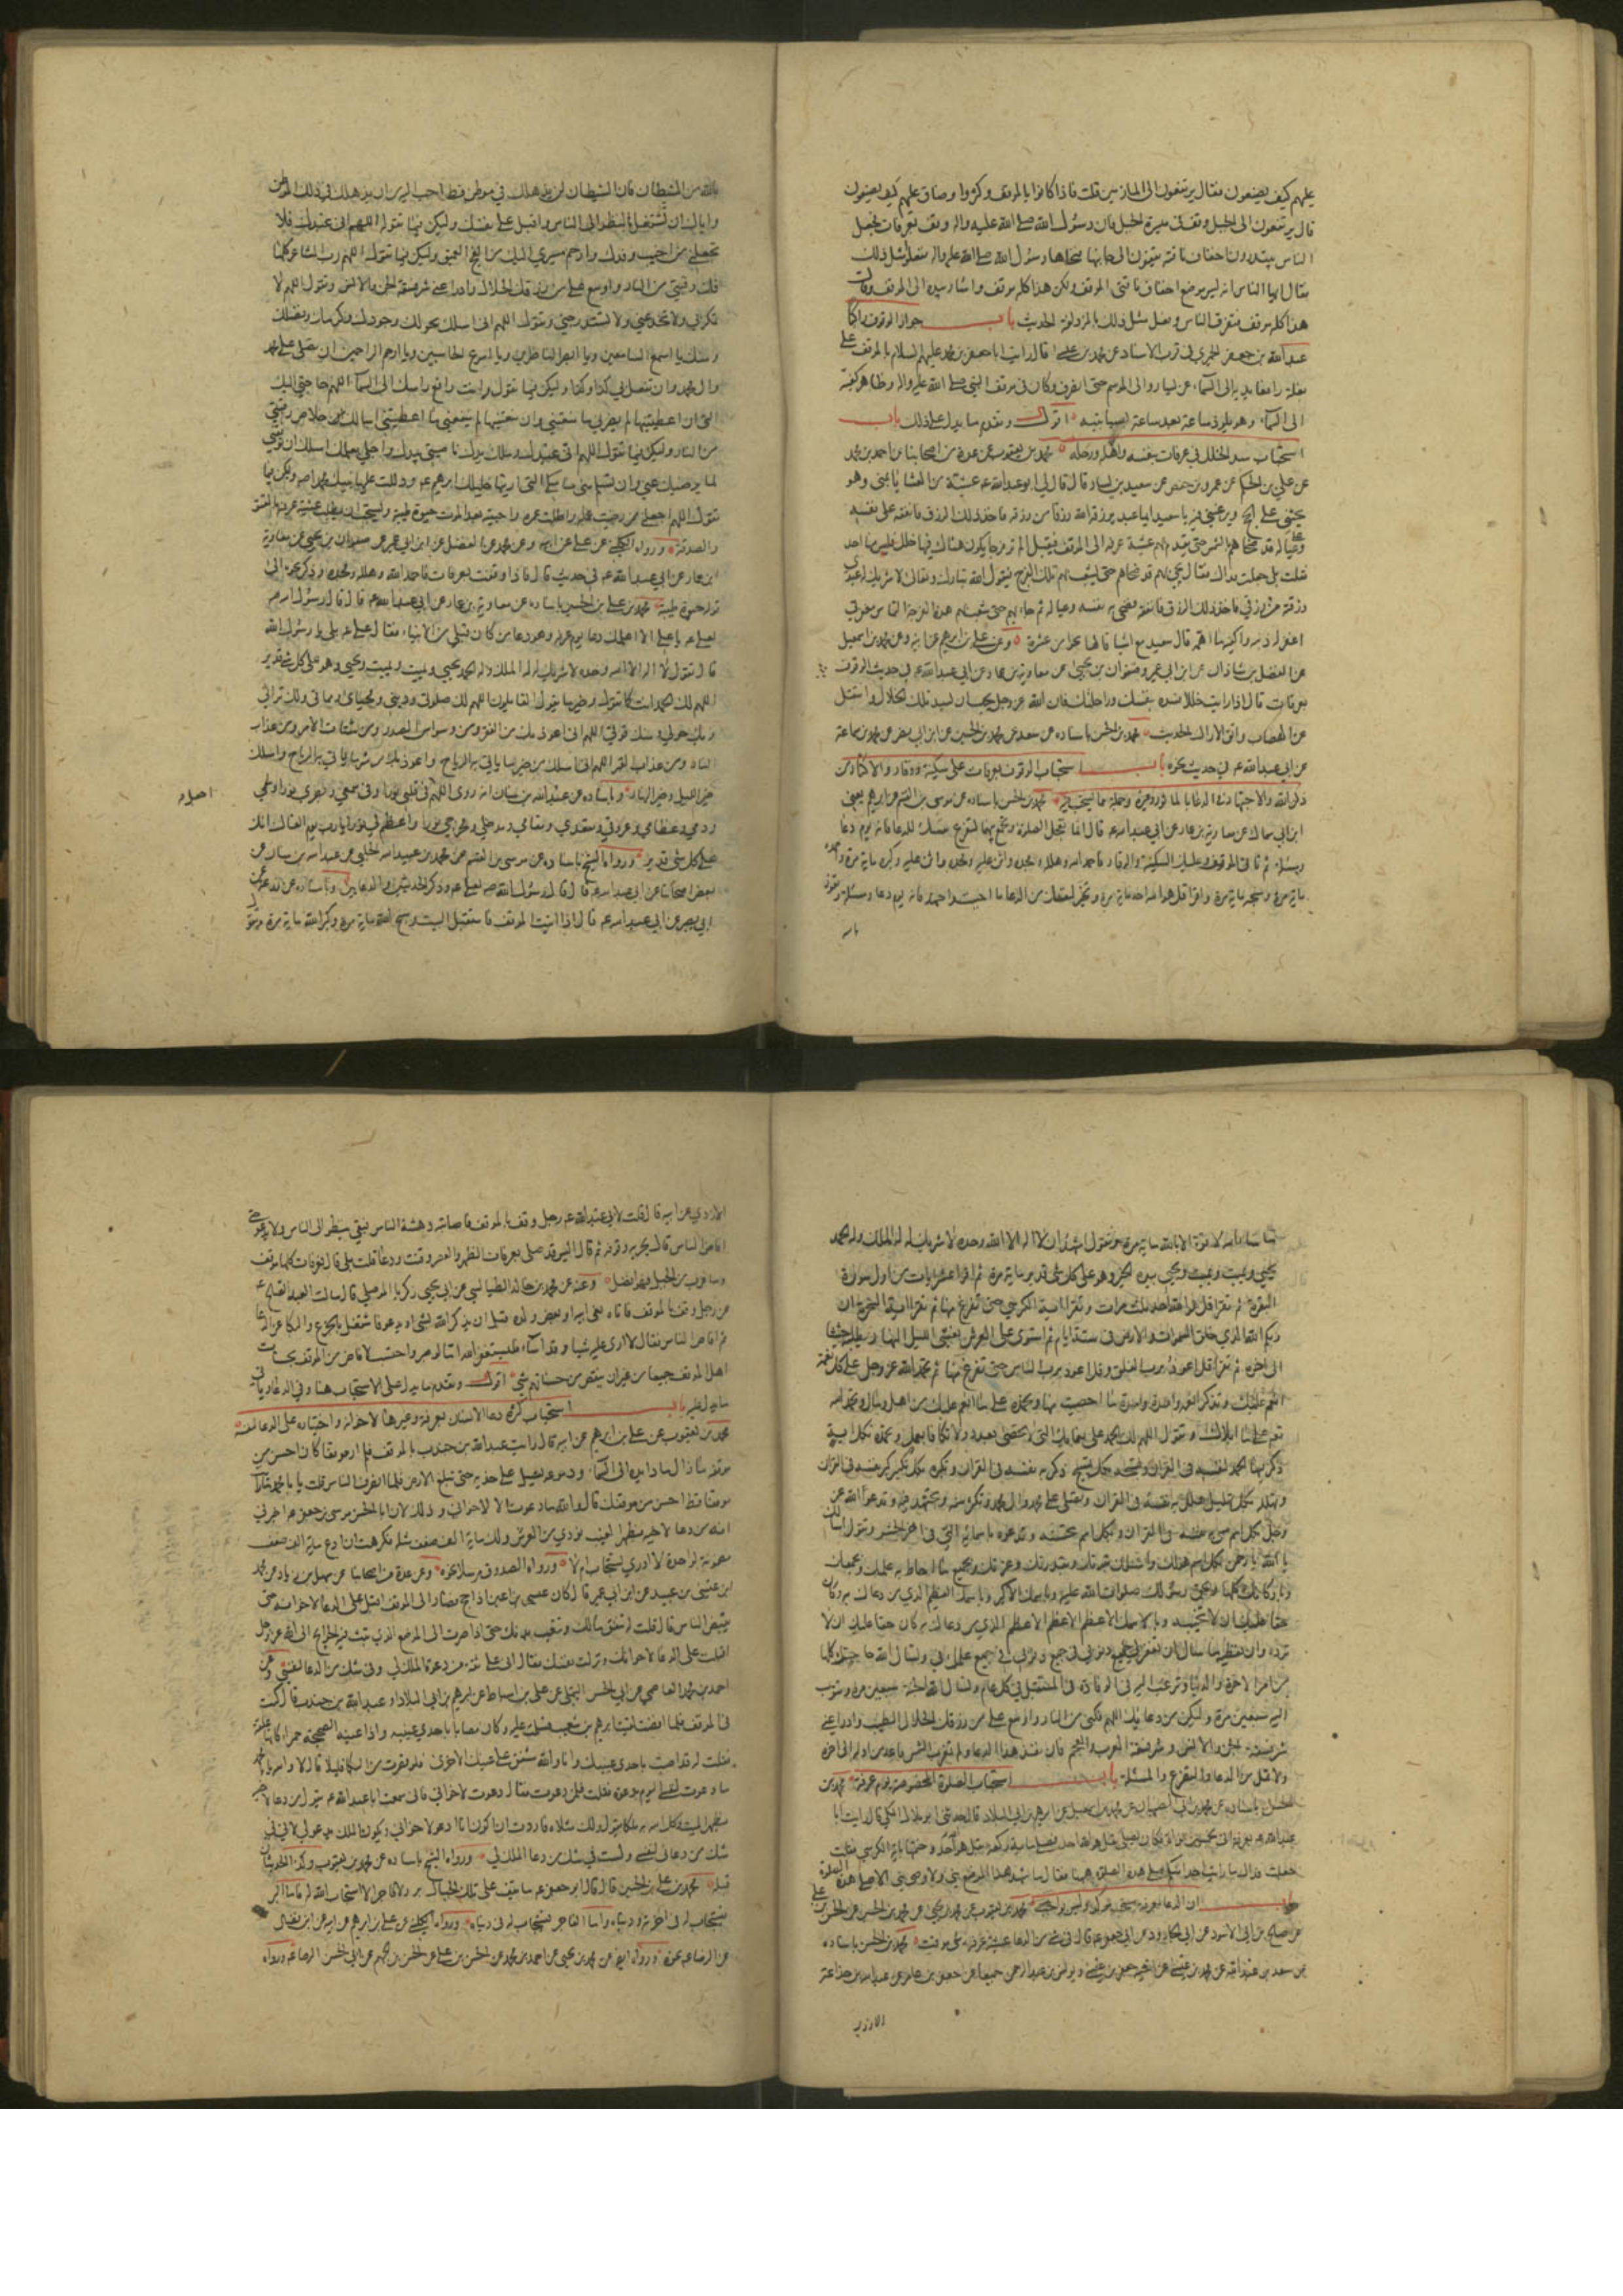 عليهم كيف يصنعون فقال يرتفعون الى المازمين قلت فاذا كانوا بالموقف وكثروا وضاق عليهم كيف يصنعون
قال يرتفعون الى الجبل وقف في ميسرة الجبل فان رسول الله صلى الله عليه واله وقف بعرفات فجعل
الناس يبتدرون اخفاف ناقته يقفون الى جانبها فنحاها رسول الله صلى الله عليه واله ففعلوا مثل ذلك
فقال ايها الناس انه ليس موضع اخفاف ناقتي الموقف ولكن هذا كله موقف واشار بيده الى الموقف وقال
هذا كله موقف فتفرق الناس وفعل مثل ذلك بالمزدلفة الحديث باب جواز الوقوف راكبا
عبد الله بن جعفر الحميري في قرب الاسناد عن محمد بن عيسى قال رايت ابا جعفر بن محمد عليهم السلام بالموقف على
بغلة رافعا يده الى السماء عن يسار والى الموسم حتى انصرف وكان في موقف النبي صلى الله عليه واله وظاهر كفيه
الى السماء وهو يلوذ ساعة بعد ساعة بسبابتيه اقول وتقدم ما يدل على ذلك باب
استحباب سد الخلل في عرفات بنفسه واهله ورحله محمد بن يعقوب عن عدة من اصحابنا عن احمد بن محمد
عن علي بن الحكم عن عمرو بن حفص عن سعيد بن يسار قال قال لي ابو عبد الله ع عشية من العشيات بمنى وهو
يحثني على الحج ويرغبني فيه يا سعيد ايما عبد رزقه الله رزقا من رزقه فاخذ ذلك الرزق فانفقه على نفسه
وعلى عياله ثم اخرجهم قد ضحاهم بالشمس حتى يقدم بهم عشية عرفة الى الموقف فيقيل الم تر فرجا يكون هناك فيها خلل فليس فيها احد
فقلت بلى جعلت فداك فقال يجئ بهم قد ضحاهم حتى يشعب بهم تلك الفرج فيقول الله تبارك وتعالى لا شريك له عبدي
رزقته من رزقي فاخذ ذلك الرزق فانفقه فضحى به نفسه وعياله ثم جاء بهم حتى شعب بهم هذه الفرجة التماس مغفرتي
اغفر له ذنبه واكفيه ما اهمه قال سعيد مع اشياء قالها نحوا من عشرة وعن علي بن ابراهيم عن ابيه وعن محمد بن اسمعيل
عن الفضل بن شاذان عن ابن ابي عمير وصفوان بن يحيى عن معاوية بن عمار عن ابي عبد الله ع في حديث الوقوف
بعرفات قال اذا رايت خللا فسده بنفسك وراحلتك فان الله عز وجل يحب ان تسد تلك الخلال وانتقل
عن الهضاب واتق الاراك الحديث محمد بن الحسن باسناده عن سعد عن محمد بن الحسين عن ابن ابي نصر عن محمد بن سماعة
عن ابي عبد الله ع في حديث نحوه باب استحباب الوقوف بعرفات على سكينة ووقار والاكثار من
ذكر الله والاجتهاد في الدعاء بالماثور وغيره وجملة مما يستحب فيه محمد بن الحسن باسناده عن موسى بن القسم عن ابراهيم يعني
ابن ابي سماك عن معاوية بن عمار عن ابي عبد الله ع قال انما تعجل الصلوة وتجمع بينهما لتفرغ نفسك للدعاء فانه يوم دعاء
ومسئلة ثم تاتي الموقف وعليك السكينة والوقار فاحمد الله وهلله ومجده واثن عليه وكبره ماية مرة واحمده
ماية مرة وسبحه ماية مرة واقرا قل هو الله احد ماية مرة وتخير لنفسك من الدعاء ما احببت واجتهد فانه يوم دعاء ومسئلة وتعوذ
بالله
بالله من الشيطان فان الشيطان لن يذهلك في موطن قط احب اليه من ان يذهلك في ذلك الموطن
واياك ان تشتغل بالنظر الى الناس واقبل على نفسك وليكن فيما تقوله اللهم اني عبدك فلا
تجعلني من اخيب وفدك وارحم مسيري اليك من الفج العميق وليكن فيما تقول اللهم رب المشاعر كلها
فك رقبتي من النار واوسع علي من رزقك الحلال وادرا عني شر فسقة الجن والانس وتقول اللهم لا
تمكر بي ولا تخدعني ولا تستدرجني وتقول اللهم اني اسئلك بحولك وجودك وكرمك وفضلك
ومنك يا اسمع السامعين ويا ابصر الناظرين ويا اسرع الحاسبين ويا ارحم الراحمين ان تصلي على محمد
وال محمد وان تفعل بي كذا وكذا وليكن فيما تقول وانت رافع راسك الى السماء اللهم حاجتي اليك
التي ان اعطيتنيها لم يضرني ما منعتني وان منعتنيها لم ينفعني ما اعطيتني اسالك خلاص رقبتي
من النار وليكن فيما تقول اللهم اني عبدك وملك يدك ناصيتي بيدك واجلي بعلمك اسئلك ان توفقني
لما يرضيك عني وان تسلم مني مناسكي التي اريتها خليلك ابرهيم ع ودللت عليها نبيك محمدا ص وليكن فيما
تقول اللهم اجعلني ممن رضيت عمله واطلت عمره واحييته بعد الموت حيوة طيبة ويستحب ان يطلب عشية عرفة بالعتق
والصدقة ورواه الكليني عن علي عن ابيه وعن محمد عن الفضل عن ابن ابي عمير عن صفوان بن يحيى عن معاوية
ابن عمار عن ابي عبد الله ع في حديث قال فاذا وقفت بعرفات فاحمد الله وهلله ومجده وذكر نحوه الى
قوله حيوة طيبة محمد بن علي بن الحسين باسناده عن معاوية بن عمار عن ابي عبد الله ع قال قال رسول الله ص
لعلي ع يا علي الا اعلمك دعاء يوم عرفة وهو دعاء من كان قبلي من الانبياء فقال علي ع بلى يا رسول الله
قال تقول لا اله الا الله وحده لا شريك له له الملك وله الحمد يحيي ويميت ويميت ويحيي وهو على كل شئ قدير
اللهم لك الحمد انت كما تقول وخير ما يقول القائلون اللهم لك صلوتي وديني ومحياي ومماتي ولك تراثي
وبك حولي ومنك قوتي اللهم اني اعوذ بك من الفقر ومن وسواس الصدور ومن شتات الامر ومن عذاب
النار ومن عذاب القبر اللهم اني اسئلك من خير ما ياتي به الرياح واعوذ بك من شر ما ياتي به الرياح واسئلك
خير الليل وخير النهار وباسناده عن عبد الله بن سنان انه روى اللهم في قلبي نورا وفي سمعي وبصري نورا ولحمي
ودمي وعظامي وعروقي ومقعدي ومقامي ومدخلي ومخرجي نورا واعظم لي نورا يا رب يوم القاك انك
على كل شئ قدير ورواه الشيخ باسناده عن موسى بن القسم عن محمد بن عبيد الله الحلبي عن عبد الله بن سنان عن
بعض اصحابنا عن ابي عبد الله ع قال قال رسول الله ص لعلي ع وذكر الحديثين والدعايين وباسناده عن زرعة عن
ابي بصير عن ابي عبد الله ع قال اذا اتيت الموقف فاستقبل البيت وسبح الله ماية مرة وكبر الله ماية مرة وتقول
ما شاء الله لا قوة الا بالله ماية مرة وتقول اشهد ان لا اله الا الله وحده لا شريك له له الملك وله الحمد
يحيي ويميت ويميت ويحيي بيده الخير وهو على كل شئ قدير ماية مرة ثم اقرا عشر ايات من اول سورة
البقرة ثم تقرا قل هو الله احد ثلث مرات وتقرا اية الكرسي حتى تفرغ منها ثم تقرا اية السخرة ان
ربكم الله الذي خلق السموات والارض في ستة ايام ثم استوى على العرش يغشي الليل النهار يطلبه حثيثا
الى اخره ثم تقرا قل اعوذ برب الفلق وقل اعوذ برب الناس حتى تفرغ منها ثم تحمد الله عز وجل على كل نعمة
انعم عليك وتذكر انعمه واحدة واحدة ما احصيت منها وتحمده على ما انعم عليك من اهل ومال وتحمد الله
تعالى على ما ابلاك وتقول اللهم لك الحمد على نعمائك التي لا تحصى بعدد ولا تكافا بعمل وتحمده بكل اية
ذكر فيها الحمد لنفسه في القران وتسبحه بكل تسبيح ذكر به نفسه في القران وتكبره بكل تكبير كبر به نفسه في القران
وتهلله بكل تهليل هلل به نفسه في القران وتصلي على محمد وال محمد وتكثر منه وتجتهد فيه وتدعو الله عز
وجل بكل اسم سمى به نفسه في القران وبكل اسم تحسنه وتدعوه باسمائه التي في اخر الحشر وتقول اسالك
يا الله يا رحمن بكل اسم هو لك واسئلك بقوتك وقدرتك وعزتك وبجميع ما احاط به علمك وبجمعك
وباركانك كلها وبحق رسولك صلوات الله عليه وباسمك الاكبر وباسمك العظيم الذي من دعاك به كان
حقا عليك ان لا تخيبه وباسمك الاعظم الاعظم الاعظم الذي من دعاك به كان حقا عليك ان لا
ترده وان تعطيه ما سال ان تغفر لي جميع ذنوبي في جميع علمك في وتسال الله حاجتك كلها
من امر الاخرة والدنيا وترغب اليه في الوفادة في المستقبل في كل عام وتسال الله الجنة سبعين مرة وتتوب
اليه سبعين مرة وليكن من دعائك اللهم فكني من النار واوسع علي من رزقك الحلال الطيب وادرا عني
شر فسقة الجن والانس وشر فسقة العرب والعجم فان نفد هذا الدعاء ولم تغرب الشمس فاعده من اوله الى اخره
ولا تمل من الدعاء والتضرع والمسئلة باب استحباب الصلوة المخصوصة يوم عرفة محمد بن
الحسن باسناده عن محمد بن ابي الصهبان عن محمد بن اسمعيل عن ابراهيم بن ابي البلاد قال حدثني ابو بلال المكي قال رايت ابا
عبد الله ع بعرفة اتى بخمسين نواة فكان يصلي بقل هو الله احد فصلى ماية ركعة بقل هو الله احد وختمها باية الكرسي فقلت
جعلت فداك ما رايت احدا منكم صلى هذه الصلوة ههنا فقال ما شهد هذا الموضع نبي ولا وصي نبي الا صلى هذه الصلوة
باب ان الدعاء بعرفة يستحب مؤكدا وليس بواجب محمد بن يعقوب عن محمد بن يحيى عن محمد بن الحسين عن علي
عن صالح بن ابي الاسود عن ابي الجارود عن ابي جعفر ع قال ليس في شئ من الدعاء عشية عرفة شئ موقت محمد بن الحسن باسناده
عن سعد بن عبد الله عن محمد بن عيسى عن اخيه جعفر بن عيسى ويونس بن عبد الرحمن جميعا عن جعفر بن عامر عن عبد الله بن جذاعة
الازدي
الازدي عن ابيه قال قلت لابي عبد الله ع رجل وقف بالموقف فاصابته دهشة الناس فبقي ينظر الى الناس ولا يدعو حتى
افاض الناس قال يجزيه وقوفه ثم قال اليس قد صلى بعرفات الظهر والعصر وقنت ودعا قلت بلى قال فعرفات كلها موقف
وما قرب من الجبل فهو افضل وعنه عن محمد بن خالد الطيالسي عن ابي يحيى زكريا الموصلي قال سالت العبد الصالح ع
عن رجل وقف بالموقف فاتاه نعي ابيه او بعض ولده قبل ان يذكر الله بشئ او يدعو فاشتغل بالجزع والبكاء عن الدعاء
ثم افاض الناس فقال لا ارى عليه شيئا وقد اساء فليستغفر الله اما لو صبر واحتسب لافاض من الموقف بحسنات
اهل الموقف جميعا من غير ان ينقص من حسناتهم شئ اقول وتقدم ما يدل على الاستحباب هنا وفي الدعاء وياتي
ما يدل عليه باب استحباب كثرة دعاء الانسان بعرفة وغيرها لاخوانه واختياره على الدعاء لنفسه
محمد بن يعقوب عن علي بن ابراهيم عن ابيه قال رايت عبد الله بن جندب بالموقف فلم ار موقفا كان احسن من
موقفه ما زال مادا يده الى السماء ودموعه تسيل على خديه حتى تبلغ الارض فلما انصرف الناس قلت يا با محمد ما رايت
موقفا قط احسن من موقفك قال والله ما دعوت الا لاخواني وذلك لان ابا الحسن موسى بن جعفر ع اخبرني
انه من دعا لاخيه بظهر الغيب نودي من العرش ولك ماية الف ضعف مثله فكرهت ان ادع ماية الف ضعف
مضمونة لواحدة لا ادري تستجاب ام لا ورواه الصدوق مرسلا نحوه وعن عدة من اصحابنا عن سهل بن زياد عن محمد
ابن عيسى بن عبيد عن ابن ابي عمير قال كان عيسى بن اعين اذا حج فصار الى الموقف اقبل على الدعاء لاخوانه حتى
يفيض الناس قال قلت له تنفق مالك وتتعب بدنك حتى اذا صرت الى الموضع الذي تبث فيه الحوايج الى الله عز وجل
اقبلت على الدعاء لاخوانك وتركت نفسك فقال اني على ثقة من دعوة الملك لي وفي شك من الدعاء لنفسي وعن
احمد بن محمد العاصمي عن ابي الحسن التيملي عن علي بن اسباط عن ابرهيم بن ابي البلاد او عبد الله بن جندب قال كنت
في الموقف فلما افضت لقيت ابرهيم بن شعيب فسلمت عليه وكان مصابا باحدى عينيه واذا عينه الصحيحة حمراء كانها علقة
فقلت له قد اصبت باحدى عينيك وانا والله مشفق على عينك الاخرى فلو قصرت من البكاء قليلا قال لا والله يا با محمد
ما دعوت لنفسي اليوم بدعوة فقلت فلمن دعوت فقال دعوت لاخواني فاني سمعت ابا عبد الله ع يقول من دعا لاخيه
بظهر الغيب وكل الله به ملكا يقول ولك مثلاه فاردت ان اكون انا ادعو لاخواني ويكون الملك يدعو لي لاني في
شك من دعائي لنفسي ولست في شك من دعاء الملك لي ورواه الشيخ باسناده عن محمد بن يعقوب وكذا الحديثان
قبله محمد بن علي بن الحسين قال قال ابو جعفر ع ما يقف على تلك الجبال بر ولا فاجر الا استجاب الله له فاما البر
فيستجاب له في اخرته ودنياه واما الفاجر فيستجاب له في دنياه ورواه الكليني عن علي بن ابراهيم عن ابيه عن ابن فضال
عن الرضا ع نحوه ورواه ايضا عن محمد بن يحيى عن احمد بن محمد عن الحسن بن علي عن الحسن بن الجهم عن ابي الحسن الرضا ع ورواه